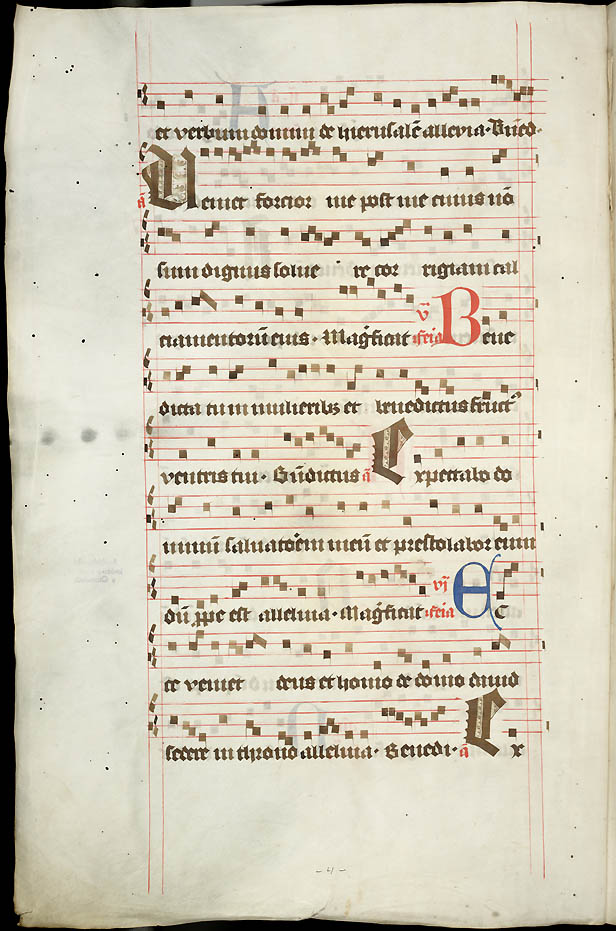 et verbum domini de hierusalē alleuia · Bn̄ed ·
a͞ Ueniet forcior me post me cuius nō
sum dignus solue re cor rigiam cal
ciamentorū eius · Mag̅ficat v̅ feīa Bene
dicta tu in mulieribꝫ et benedictus fruct⁹
ventris tui · Bn̄dictus a͞ Expectabo do
minū saluatōem meū et prestolabor eum
dū ꝓpe est alleluia · Mag̅ficat vj̄ feīa Ec
ce veniet deus et homo de domo dauid
sedere in throno alleluia · Benedi · a͞ Ex
- 4 -